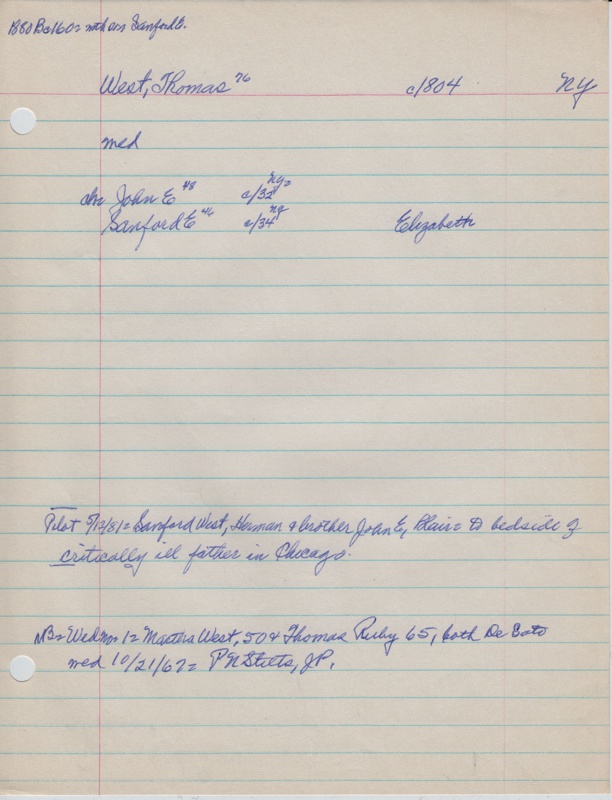 1880 Bc160= with son Sanford E.
West, Thomas 76 c/804 NY
med
chr John E 48 c/32 NY=
Sanford E 46 c/34 NY Elizabeth
Pilot 5/12/81= Sanford West, Herman & brother John E, Blair= to bedside of
critically ill father in Chicago.
NB= Wed no 1= West, 50 & Thomas Ruby 65, both De Soto
med 10/21/67= P N Stilts, J.P.